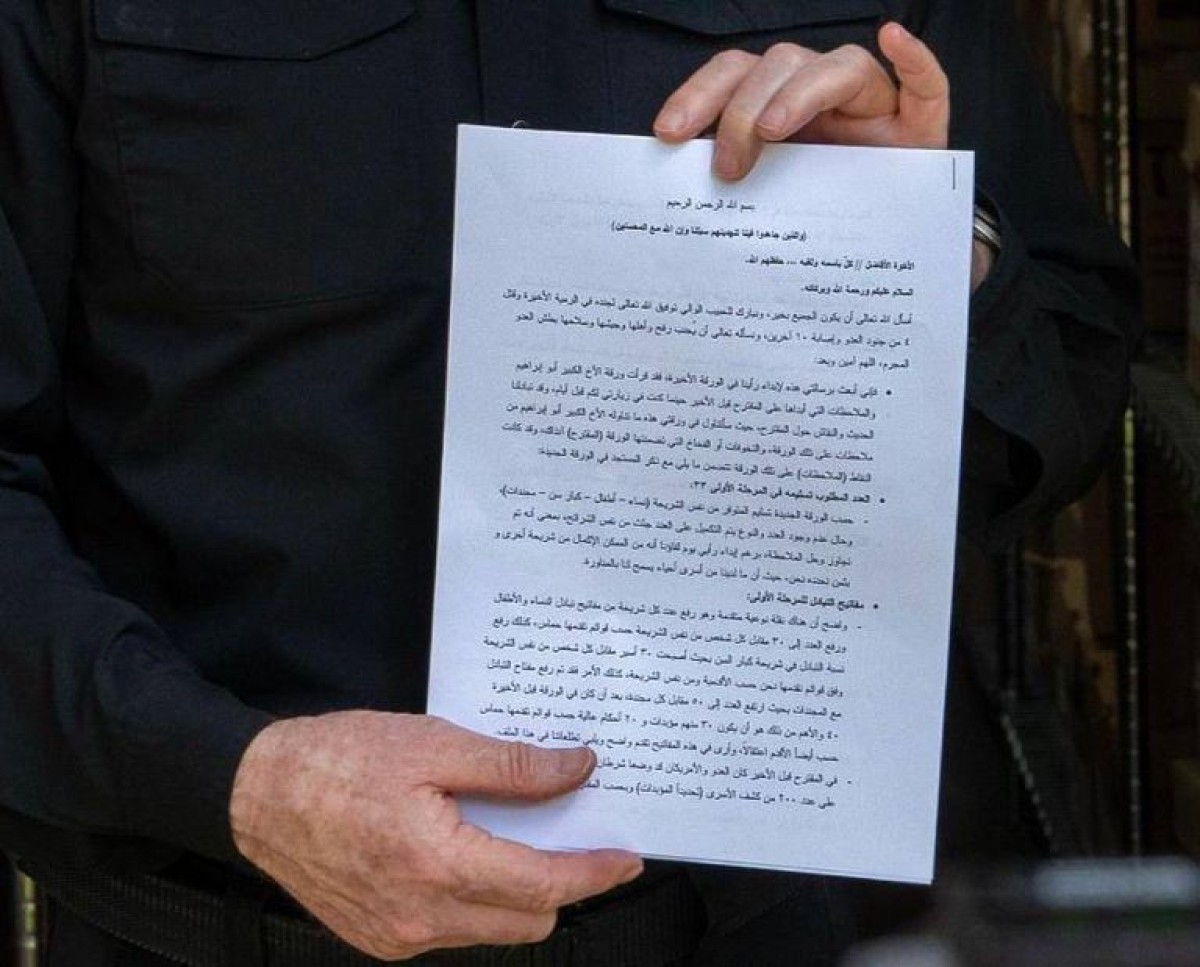 بسم الله الرحمن الرحيم
(والذين جاهدوا فينا لنهدينهم سبلنا وإن الله مع المحسنين)
الأخوة الأفاضل // كلٌ باسمه ولقبه ... حفظهم الله.
السلام عليكم ورحمة الله وبركاته.
أسأل الله تعالى أن يكون الجميع بخير، ونبارك الحبيب الوالي توفيق الله تعالى لجنده في الرمية الأخيرة وقتل
٤ من جنود العدو وإصابة ١٠ آخرين، ونسأله تعالى أن يُجنب رفح وأهلها وجيشها وسلاحها بطش العدو
المجرم، اللهم آمين وبعد:
• فإني أبعث برسالتي هذه لإبداء رأينا في الورقة الأخيرة، فقد قرأت ورقة الأخ الكبير أبو إبراهيم
والملاحظات التي أبداها على المقترح قبل الأخير حينما كنت في زيارتي لكم قبل أيام، وقد تبادلنا
الحديث والنقاش حول المقترح، حيث سأتناول في ورقتي هذه ما تناوله الأخ الكبير أبو إبراهيم من
ملاحظات على تلك الورقة، والتخوفات أو الفخاخ التي تضمنتها الورقة (المقترح) آنذاك، وقد كانت
النقاط (الملاحظات) على تلك الورقة تتضمن ما يلي مع ذكر المستجد في الورقة الجديدة:
• العدد المطلوب تسليمه في المرحلة الأولى ٣٣:
- حسب الورقة الجديدة تسليم المتوفر من نفس الشريحة (نساء – أطفال – كبار سن – مجندات)،
وحال عدم وجود العدد والنوع يتم التكميل على العدد جثث من نفس الشرائح، بمعنى أنه تم
تجاوز وحل الملاحظة، برغم إبداء رأيي يوم لقاؤنا أنه من الممكن الإكمال من شريحة أخرى و
بثمن نحدده نحن، حيث أن ما لدينا من أسرى أحياء يسمح لنا بالمناورة.
• مفاتيح التبادل للمرحلة الأولى:
- واضح أن هناك نقلة نوعية متقدمة وهو رفع عدد كل شريحة من مفاتيح تبادل النساء والأطفال
ورفع العدد إلى ٣٠ مقابل كل شخص من نفس الشريحة حسب قوائم تقدمها حماس، كذلك رفع
نسبة التبادل في شريحة كبار السن بحيث أصبحت ٣٠ أسير مقابل كل شخص من نفس الشريحة
وفق قوائم نقدمها نحن حسب الأقدمية ومن نفس الشريحة، كذلك الأمر فقد تم رفع مفتاح التبادل
مع المجندات بحيث ارتفع العدد إلى ٥٠ مقابل كل مجندة، بعد أن كان في الورقة قبل الأخيرة
٤٠ والأهم من ذلك هو أن يكون ٣٠ منهم مؤبدات و ٢٠ أحكام عالية حسب قوائم تقدمها حماس
حسب أيضاً الأقدم اعتقالاً، وأرى في هذه المفاتيح تقدم واضح ويلبي تطلعاتنا في هذا الملف.
- في المقترح قبل الأخير كان العدو والأمريكان قد وضعا شرطان
على عدد ٢٠٠ من كشف الأسرى (تحديداً المؤبدات) وبحسب